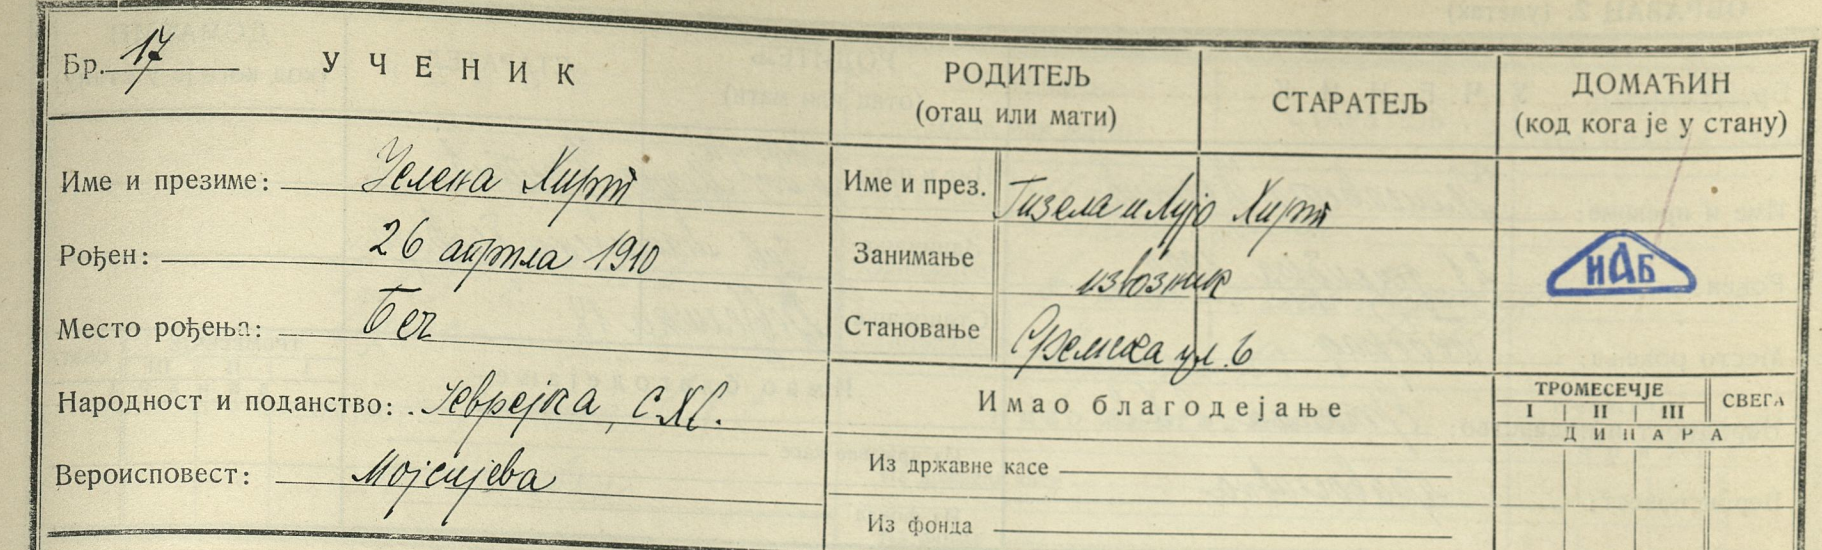 Бр. 17 УЧЕНИК
РОДИТЕЉ
(отац или мати)
СТАРАТЕЉ
ДОМАЋИН
(код кога је у стану)
Име и презиме: Јелена Хирт
Рођен: 26 априла 1910
Место рођења: Беч
Народност и поданство: Јеврејка, С.Х.С.
Вероисповест: Мојсијева
Име и през. Гизела и Лујо Хирт
Занимање извозник
Становање Сремска ул. 6
ИАБ
Имао благодејање
ТРОМЕСЕЧЈЕ
I II III
СВЕГА
ДИНАРА
Из државне касе
Из фонда